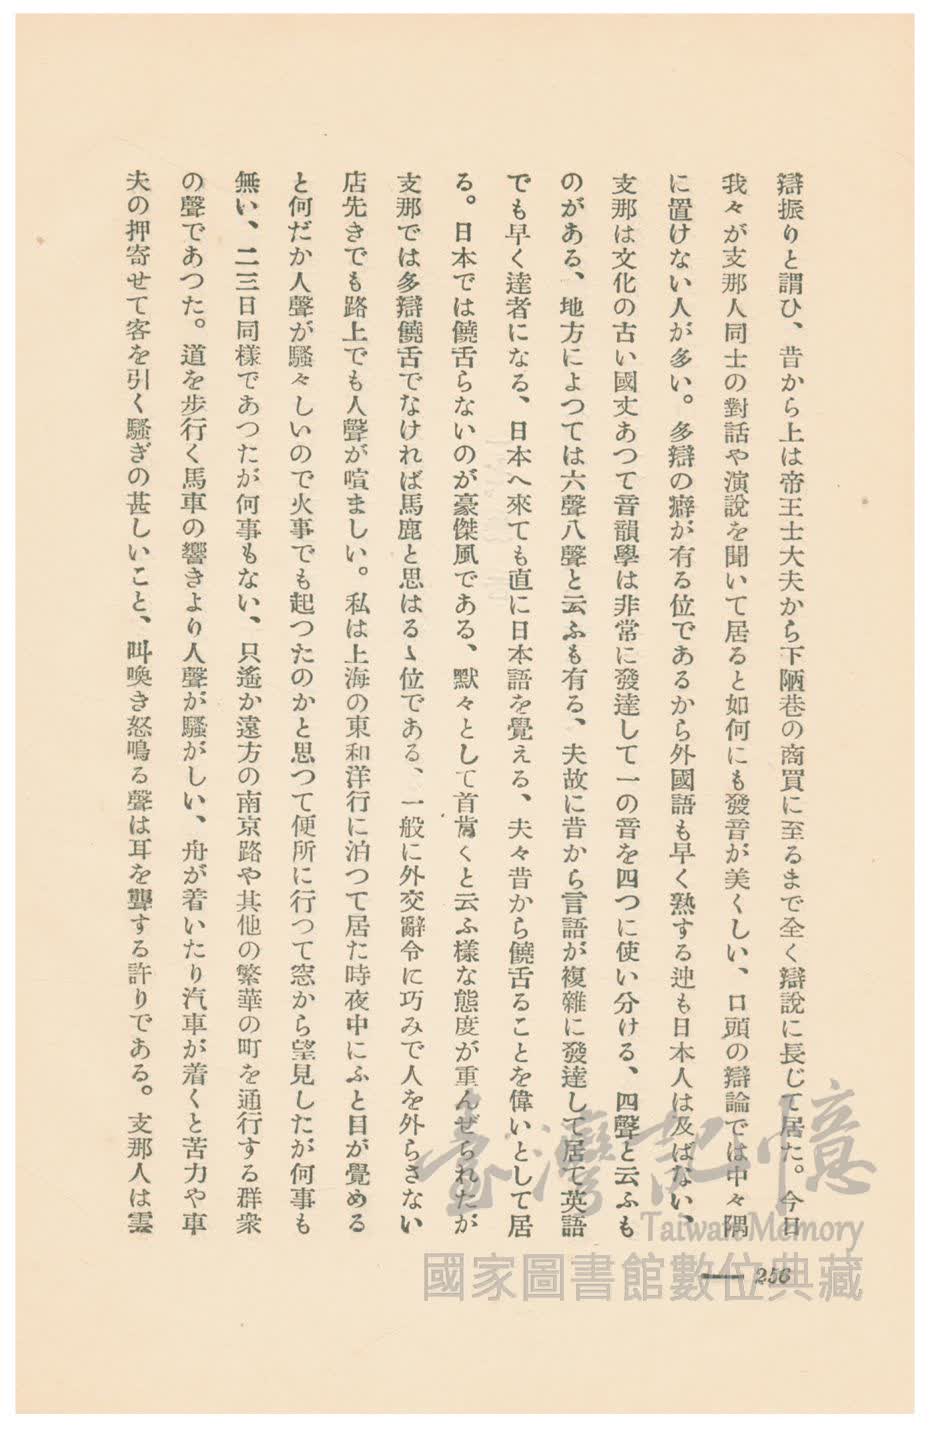 辯振りと謂ひ、昔から上は帝王士大夫から下陋巷の商買に至るまで全く辯說に長じて居た。今日
我々が支那人同士の對話や演說を聞いて居ると如何にも發音が美くしい、口頭の辯論では中々隅
に置けない人が多い。多辯の癖が有る位であるから外國語も早く熟する迚も日本人は及ばない、
支那は文化の古い國丈あつて音韻學は非常に發達して一の音を四つに使い分ける、四聲と云ふも
のがある、地方によつては六聲八聲と云ふも有る、夫故に昔から言語が複雜に發達して居て英語
でも早く達者になる、日本へ來ても直に日本語を覺える、夫々昔から饒舌ることを偉いとして居
る。日本では饒舌らないのが豪傑風である、默々として首肯くと云ふ樣な態度が重んぜられたが
支那では多辯饒舌でなければ馬鹿と思はるゝ位である、一般に外交辭令に巧みで人を外らさない
店先きでも路上でも人聲が喧ましい。私は上海の東和洋行に泊つて居た時夜中にふと目が覺める
と何だか人聲が騷々しいので火事でも起つたのかと思つて便所に行つて窓から望見したが何事も
無い、二三日同樣であつたが何事もない、只遙か遠方の南京路や其他の繁華の町を通行する群衆
の聲であつた。道を步行く馬車の響きより人聲が騷がしい、舟が着いたり汽車が着くと苦力や車
夫の押寄せて客を引く騷ぎの甚しいこと、叫喚き怒鳴る聲は耳を聾する許りである。支那人は雲
256
臺灣記憶
Taiwan Memory
國家圖書館數位典藏